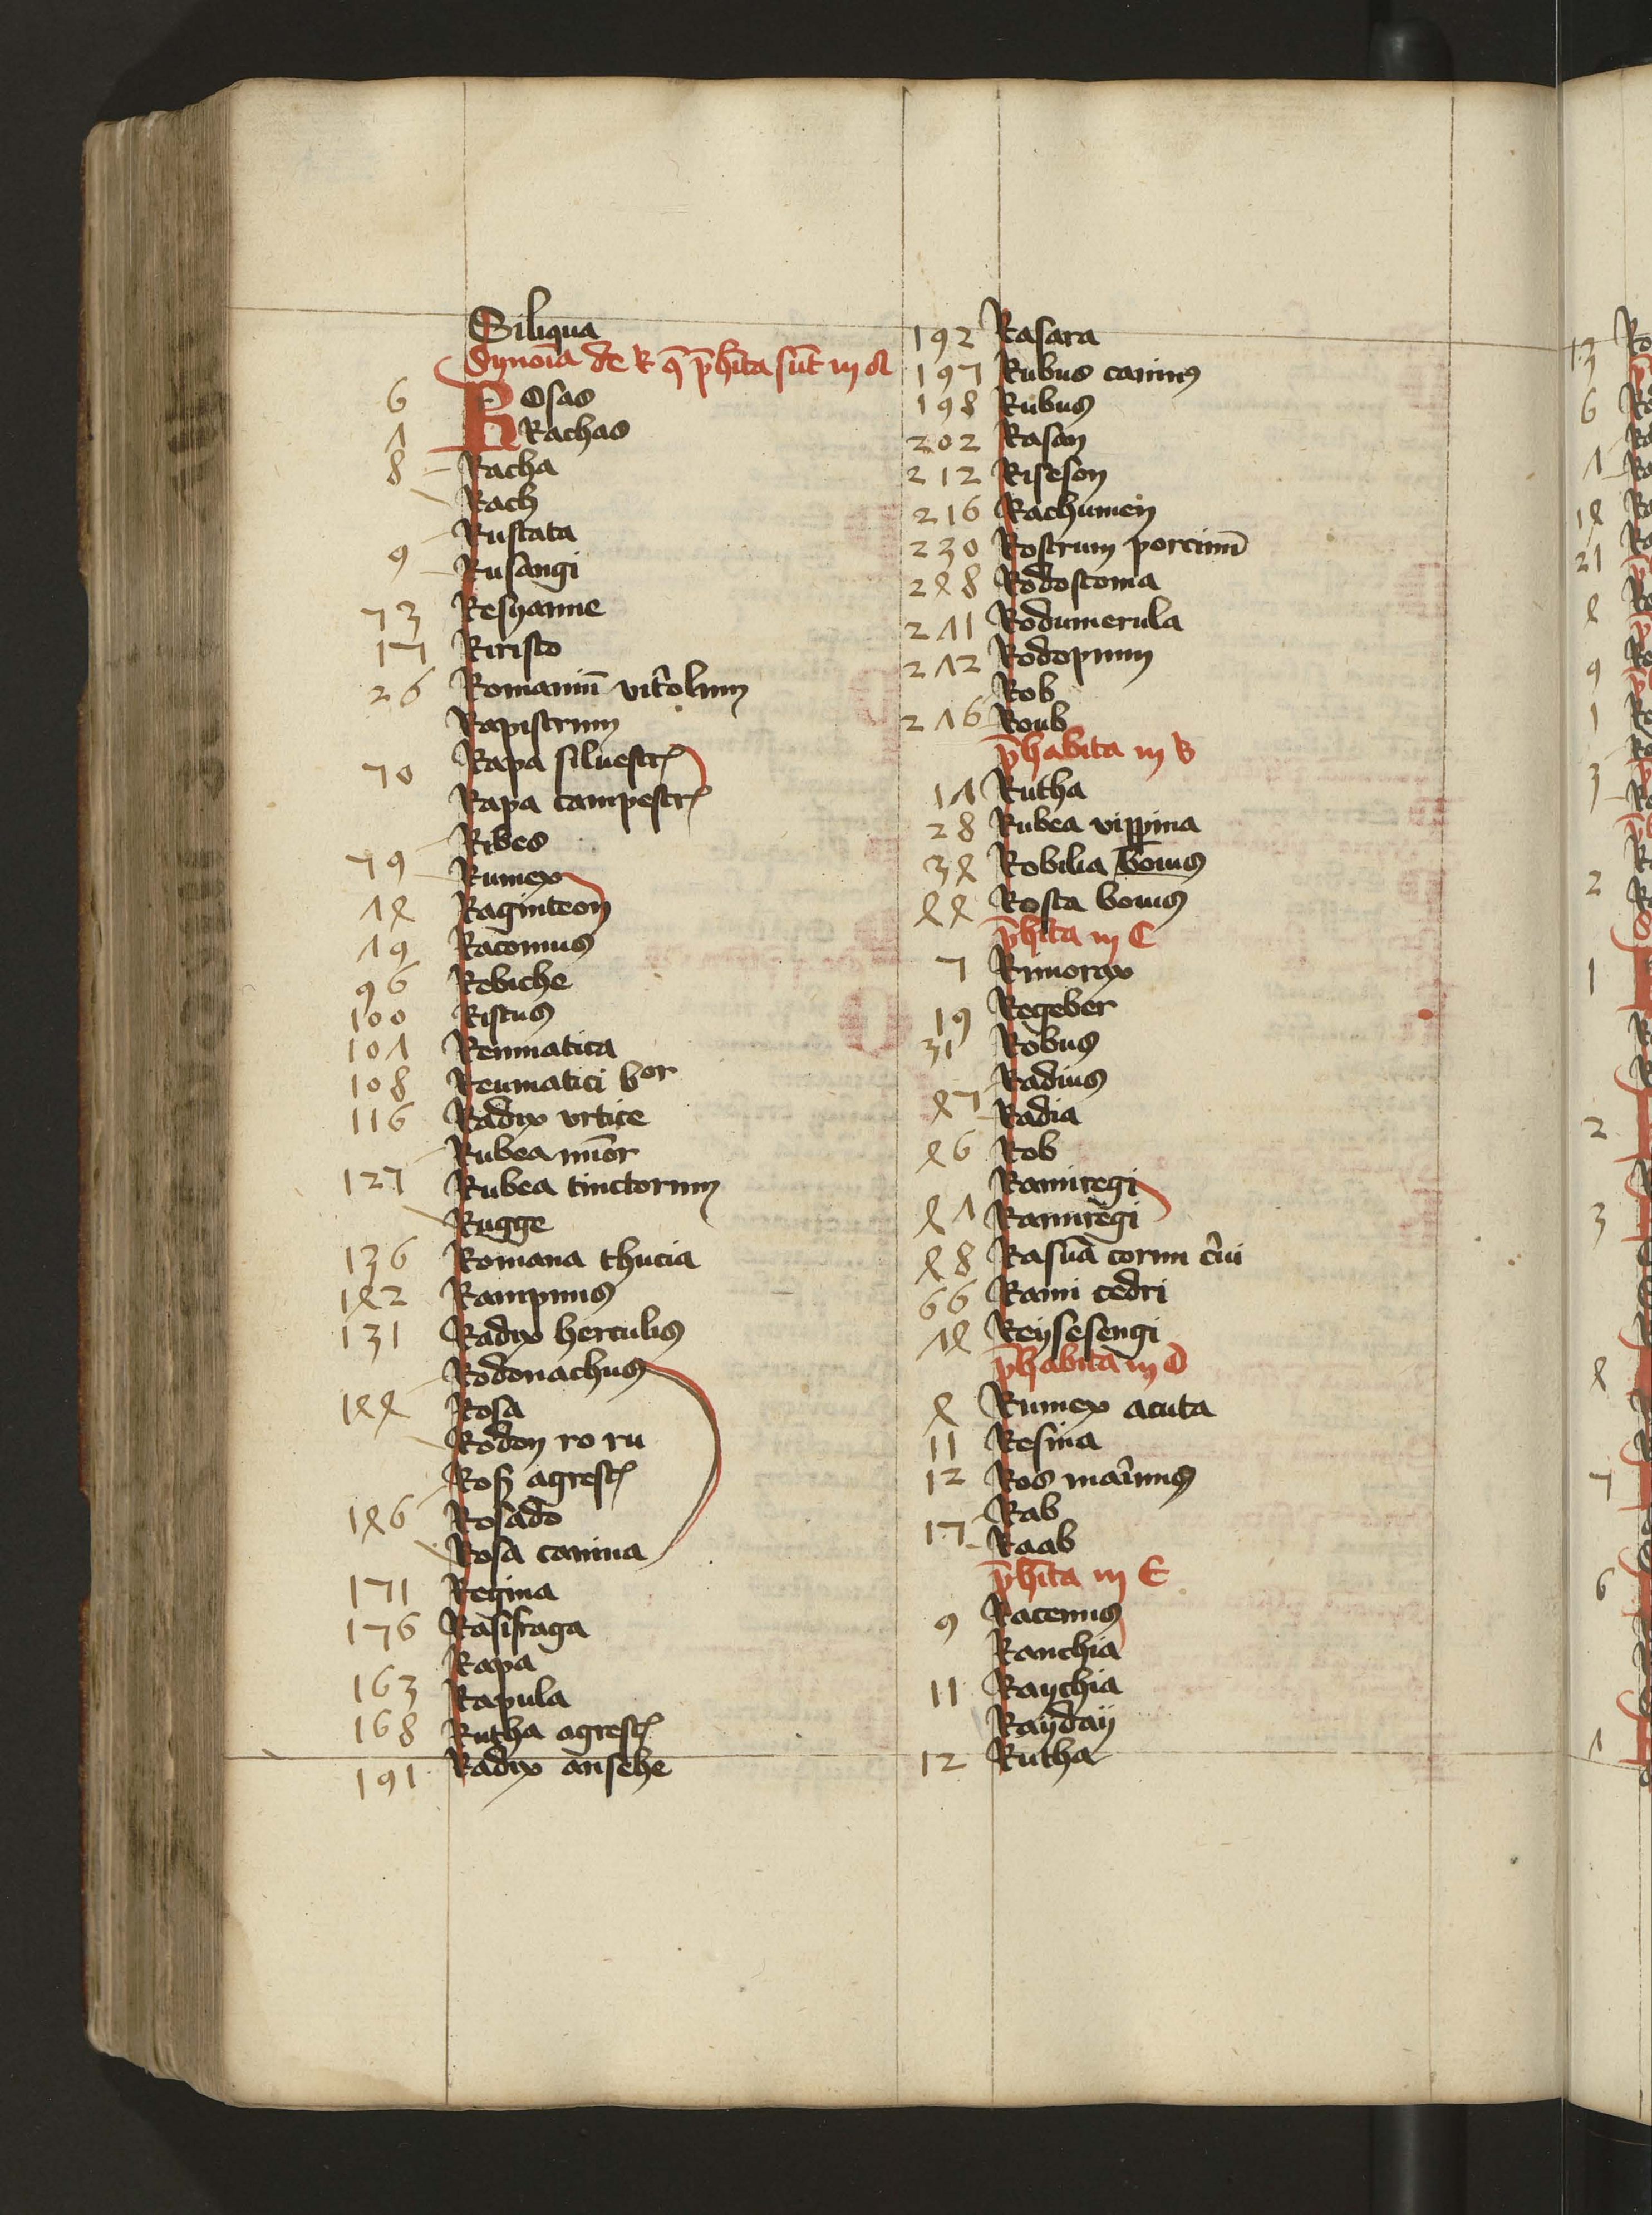 Siliqua
Synoīa de R q̄ p̄hīta sūt in A
6 Rosas
Λ Rachas
8 Racha
Rach
Rustata
9 Rusangi
73 Resyanne
17 Riristo
26 Romaniū vitrolum
Rapistrum
70 Rapa siluestr
Rapa campestr
Ribes
79 Rumex
Λ8 Raginteon
Λ9 Raconius
96 Rebiche
100 Ristus
10Λ Reumatica
108 Reumatici bor
116 Radix vrtice
Rubea mīor
127 Rubea tinctorum
Rugge
136 Romana thucia
1ꝭ2 Rampnus
131 Radix herculis
Rodonachus
1ꝭꝭ Rosa
Rodon ro ru
Ros agrest
1ꝭ6 Rosado
Rosa canina
171 Regina
176 Rasifraga
Rapa
163 Rapula
168 Rutha agrest
191 Radix ansehe
192 Rasara
197 Rubus caninus
198 Rubus
202 Rasan
212 Riseson
216 Rachumen
230 Rostrum porcinū
2ꝭ8 Rodostoma
2Λ1 Rodumerula
2Λ2 Rodopnum
Rob
2Λ6 Roub
p̄habita in B
1Λ Rutha
28 Rubea vippina
3ꝭ Robilia bouis
ꝭꝭ Rosta bouis
p̄hīta in C
7 Rimorax
19 Regeber
31 Robus
Radius
ꝭ7 Radia
ꝭ6 Rob
Ramiregi
ꝭΛ Ramiregi
ꝭ8 Rasūa cornu c̄ui
66 Rami cedri
Λꝭ Reysesengi
p̄habita in D
ꝭ Rumex acuta
11 Resina
12 Ros marinus
Rab
17 Raab
p̄hīta in E
9 Racemus
Ranchia
11 Raychia
Rayday
12 Rutha